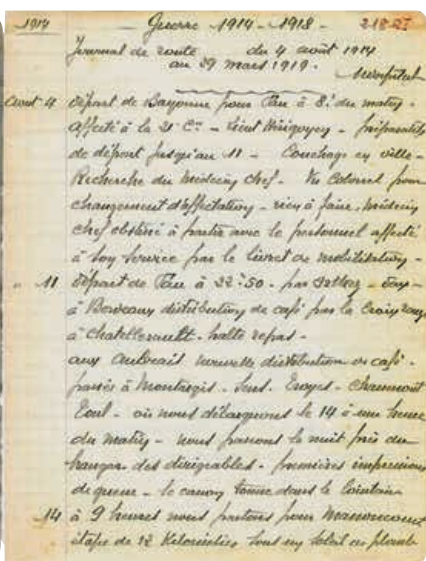 1914 Guerre 1914 - 1918 - 218 RI
Journal de route du 4 août 1914
au 29 mars 1919.
Août 4 départ de Bayonne pour Pau à 8h du matin -
Affecté à la 21 Cie - Lieut - préparatifs
de départ jusqu'au 11 - Couchage en ville -
Recherche du médecin chef. Vu Colonel pour
changement d'affectation - rien à faire, médecin
chef obstiné à partir avec le personnel affecté
à son service par le livret de mobilisation -
" 11 départ de Pau à 22h50 - par Orthez - Dax -
à Bordeaux distribution de café par la Croix rouge
à Chatellerault - halte repas -
aux Aubrais nouvelle distribution de café -
passés à Montargis - Sens. Troyes - Chaumont
Toul - où nous débarquons le 14 à une heure
du matin - nous passons la nuit près du
hangar des dirigeables - premières impressions
de guerre - le canon tonne dans le lointain
14 à 9 heures nous partons pour Manoncourt
étape de 12 Kilomètres sous un soleil de plomb